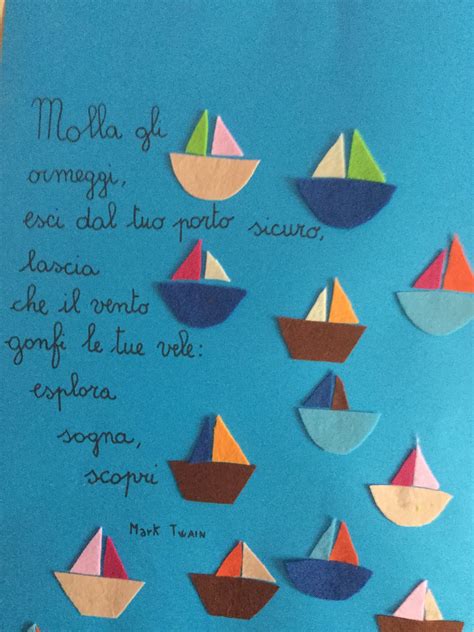 Molla gli
ormeggi,
esci dal tuo porto sicuro,
lascia
che il vento
gonfi le tue vele:
esplora
sogna,
scopri
Mark Twain